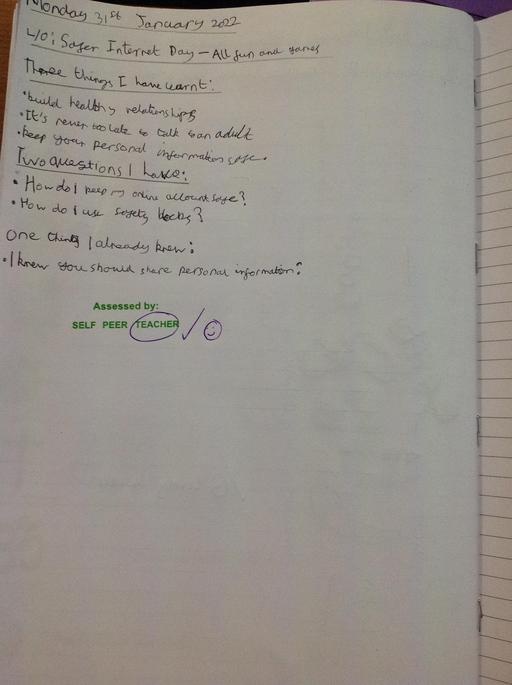 Monday 31st January 2022
L/O: Safer Internet Day - All fun and games
Three things I have learnt:
• build healthy relationships
• It's never too late to talk to an adult
• keep your personal information safe.
Two questions I have:
• How do I keep my online account safe?
• How do I use safety blocks?
One thing I already knew:
• I knew you should share personal information?
Assessed by:
SELF PEER TEACHER